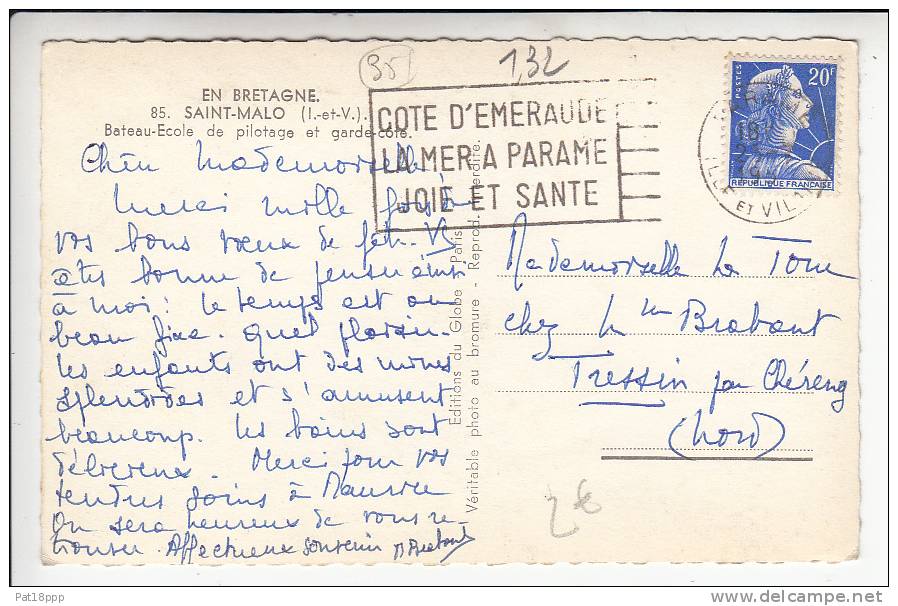 35
1,32
EN BRETAGNE.
85. SAINT-MALO (I.-et-V.).
Bateau-Ecole de pilotage et garde-côte.
COTE D'EMERAUDE
LA MER A PARAME
JOIE ET SANTE
POSTES
20F
REPUBLIQUE FRANÇAISE
ILLE ET VIL
Chère Mademoiselle
Merci mille fois à
vos bons voeux de fête. Vs
êtes bonne de penser ainsi
à moi! Le temps est au
beau fixe. Quel plaisir.
Les enfants ont des mines
splendides et s'amusent
beaucoup. Les bains sont
délicieux. Merci pour vos
tendres soins à Maurice
On sera heureux de vous re-
trouver. Affectueux souvenir M Brabant
Editions du Globe - Paris
Véritable photo au bromure - Reprod. interdite.
Mademoiselle Le Tour
chez Mme Brabant
Tressin par Chéreng
(Nord)
2€
Pat18ppp
delcampe.net